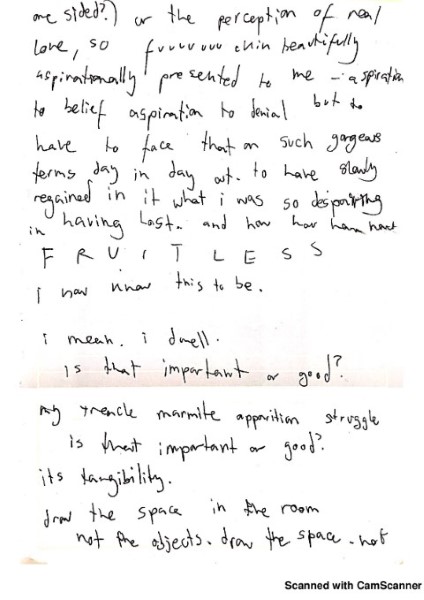 one sided?) or the perception of real
love, so fuuuuuu chin beautifully
aspirationally presented to me - aspiration
to belief aspiration to denial but to
have to face that on such gorgeous
terms day in day out. to have slowly
regained in it what i was so despairing
in having lost. and how
F R U I T L E S S
i now know this to be.
i mean. i dwell.
is that important or good?
my treacle marmite apparition struggle
is that important or good?
its tangibility.
draw the space in the room
not the objects. draw the space. not
Scanned with CamScanner